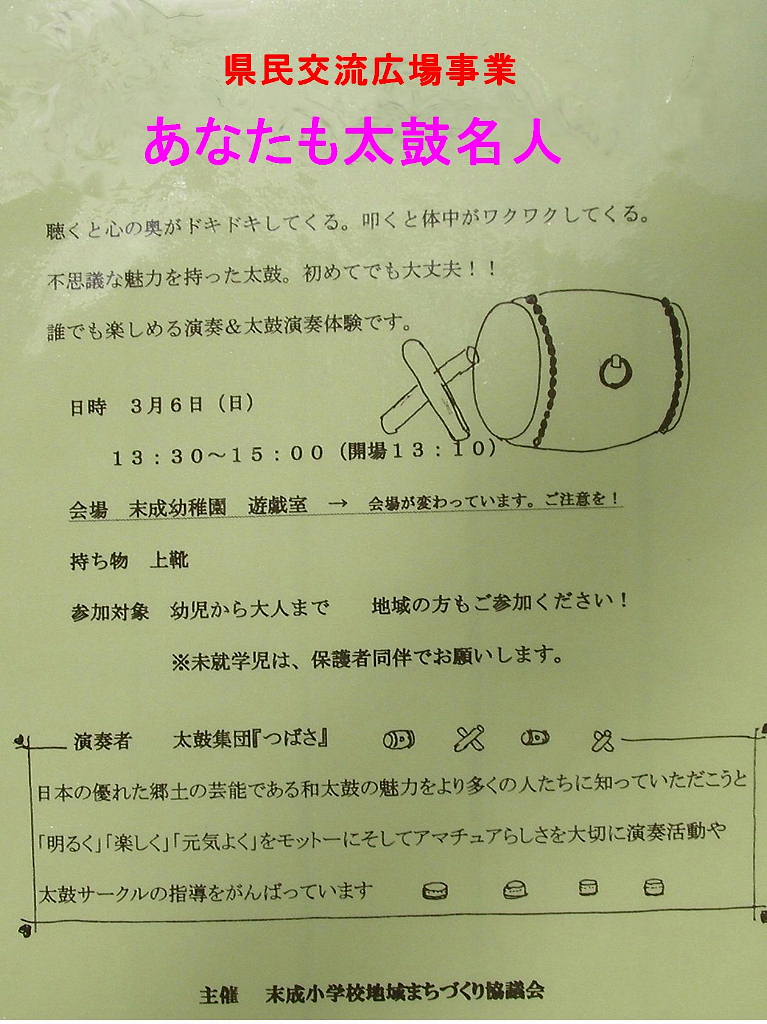 県民交流広場事業
あなたも太鼓名人
聴くと心の奥がドキドキしてくる。叩くと体中がワクワクしてくる。
不思議な魅力を持った太鼓。初めてでも大丈夫！！
誰でも楽しめる演奏＆太鼓演奏体験です。
日時　３月６日（日）
１３：３０～１５：００（開場１３：１０）
会場　末成幼稚園　遊戯室　→　会場が変わっています。ご注意を！
持ち物　上靴
参加対象　幼児から大人まで　　地域の方もご参加ください！
※未就学児は、保護者同伴でお願いします。
演奏者　　太鼓集団『つばさ』
日本の優れた郷土の芸能である和太鼓の魅力をより多くの人たちに知っていただこうと
「明るく」「楽しく」「元気よく」をモットーにそしてアマチュアらしさを大切に演奏活動や
太鼓サークルの指導をがんばっています
主催　末成小学校地域まちづくり協議会